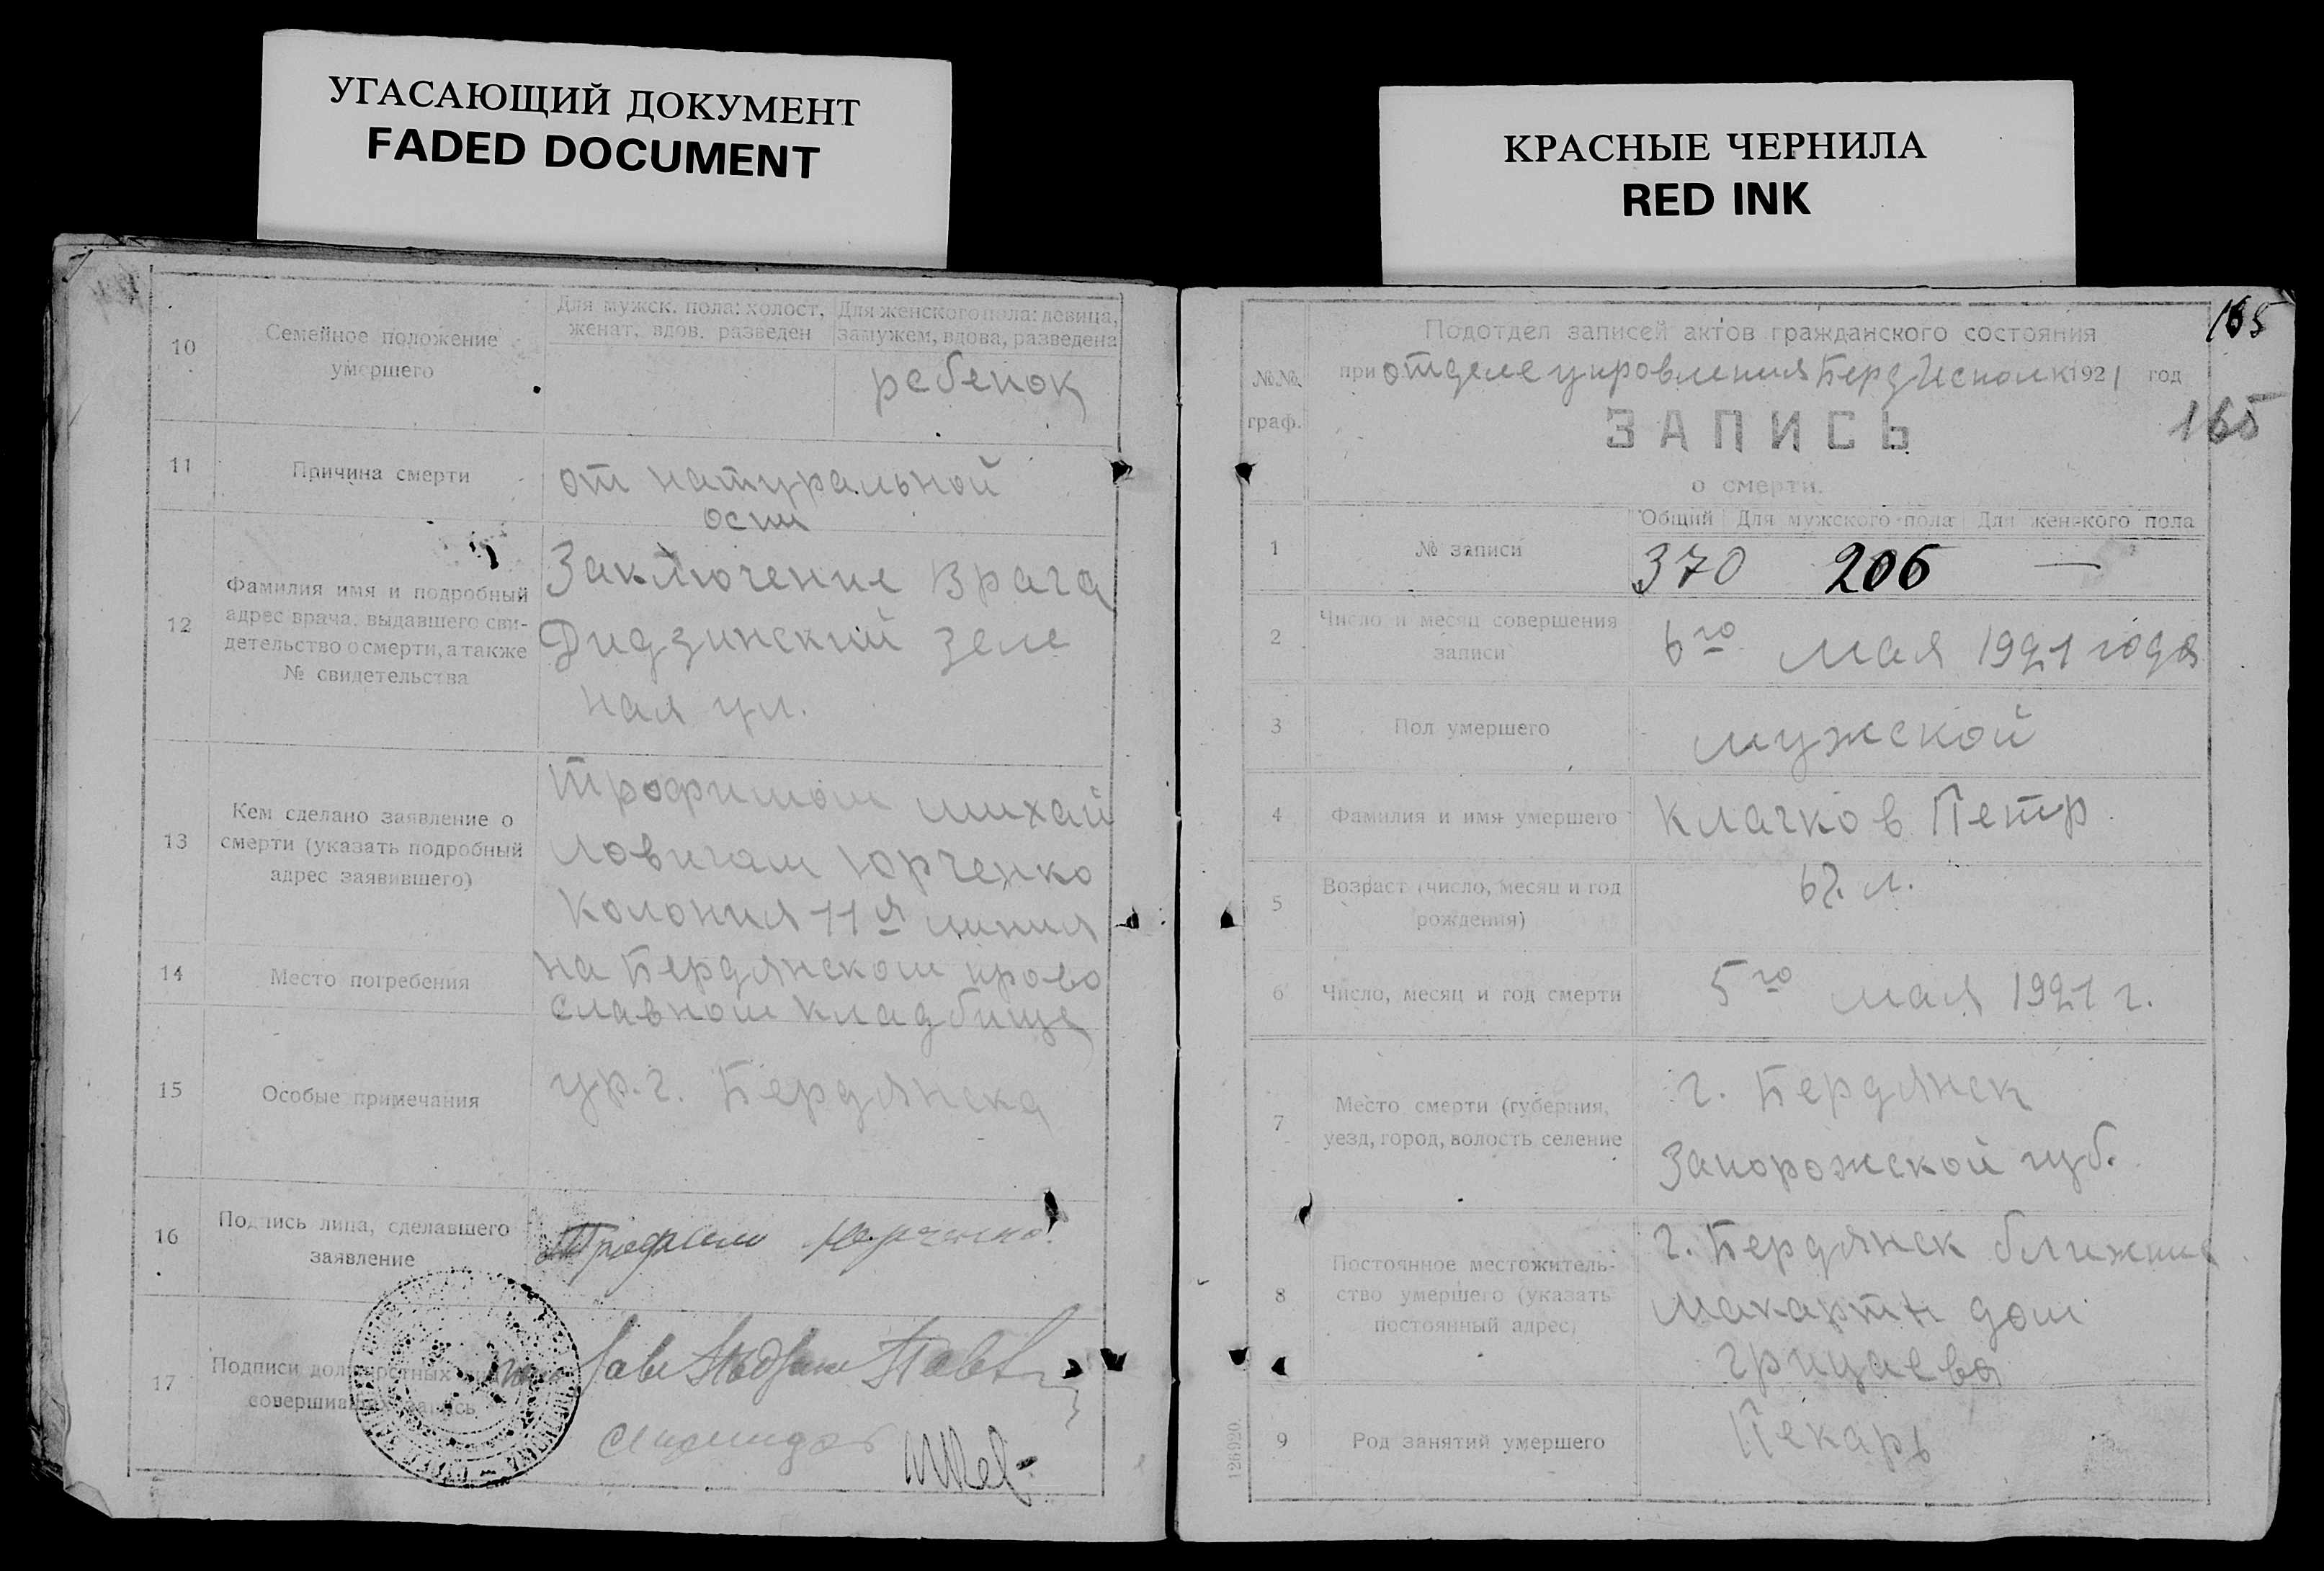 УГАСАЮЩИЙ ДОКУМЕНТ
FADED DOCUMENT
10
Семейное положение
умершего
Для мужск. пола: холост,
женат, вдов, разведен
Для женского пола: девица,
замужем, вдова, разведена
ребенок
11
Причина смерти
от натуральной
оспи
12
Фамилия имя и подробный
адрес врача, выдавшего сви-
детельство о смерти, а также
№ свидетельства
Заключение врача
Дидзинский Зеле
ная ул.
13
Кем сделано заявление о
смерти (указать подробный
адрес заявившего)
Трофимом михай
ловичам Юрченко
Колония 11я линия
14
Место погребения
на Бердянском право
славном кладбище
15
Особые примечания
ур. г. Бердянска
16
Подпись лица, сделавшего
заявление
Трофим Юрченко
17
Подписи должностных лиц
совершивших запись
КРАСНЫЕ ЧЕРНИЛА
RED INK
165
165
№№
граф.
Подотдел записей актов гражданского состояния
при отделе управления БердИсполк 1921 год
ЗАПИСЬ
о смерти.
1
№ записи
Общий Для мужского пола Для женского пола
370 206 —
2
Число и месяц совершения
записи
6го мая 1921 года
3
Пол умершего
мужской
4
Фамилия и имя умершего
Клачков Петр
5
Возраст (число, месяц и год
рождения)
6
Число, месяц и год смерти
5го мая 1921 г.
7
Место смерти (губерния,
уезд, город, волость селение
г. Бердянск
Запорожской губ.
8
Постоянное местожитель-
ство умершего (указать
постоянный адрес)
г. Бердянск ближние
макарты дом
грицаева
9
Род занятий умершего
Пекарь
126920.